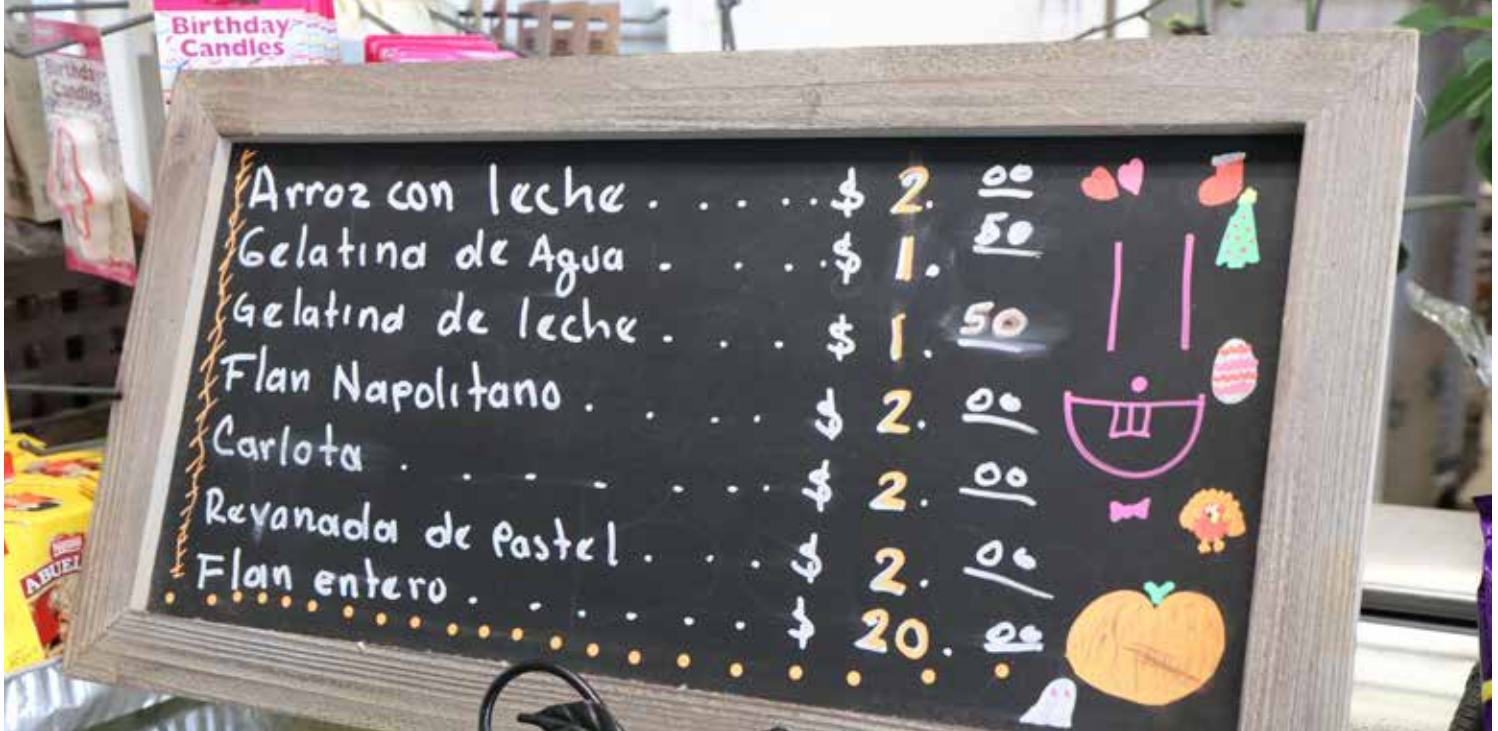 Birthday
Candles
Birthday
Candles
Arroz con leche . . . . . . $ 2. 00
Gelatina de Agua . . . . . $ 1. 50
Gelatina de leche . . . . $ 1. 50
Flan Napolitano . . . . . $ 2. 00
Carlota . . . . . . . $ 2. 00
Revanada de Pastel . . . . $ 2. 00
Flan entero . . . . . . $ 20. 00
Nestlé
ABUEL